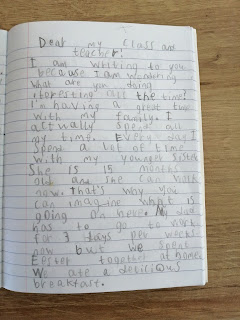 Dear my class and
teacher!
I am writing to you
because I am wondering
what are you doing
interesting all the time?
I'm having a great time
with my family. I
actually spend all
my time. Every day I
spend a lot of time
with my younger sister
She is 15 months
old and she can walk
now. That's why you
can imagine what is
going on here. My dad
has to go to work
for 3 days per week
now but we spent
Easter together at home.
We ate a delicious
breakfast.